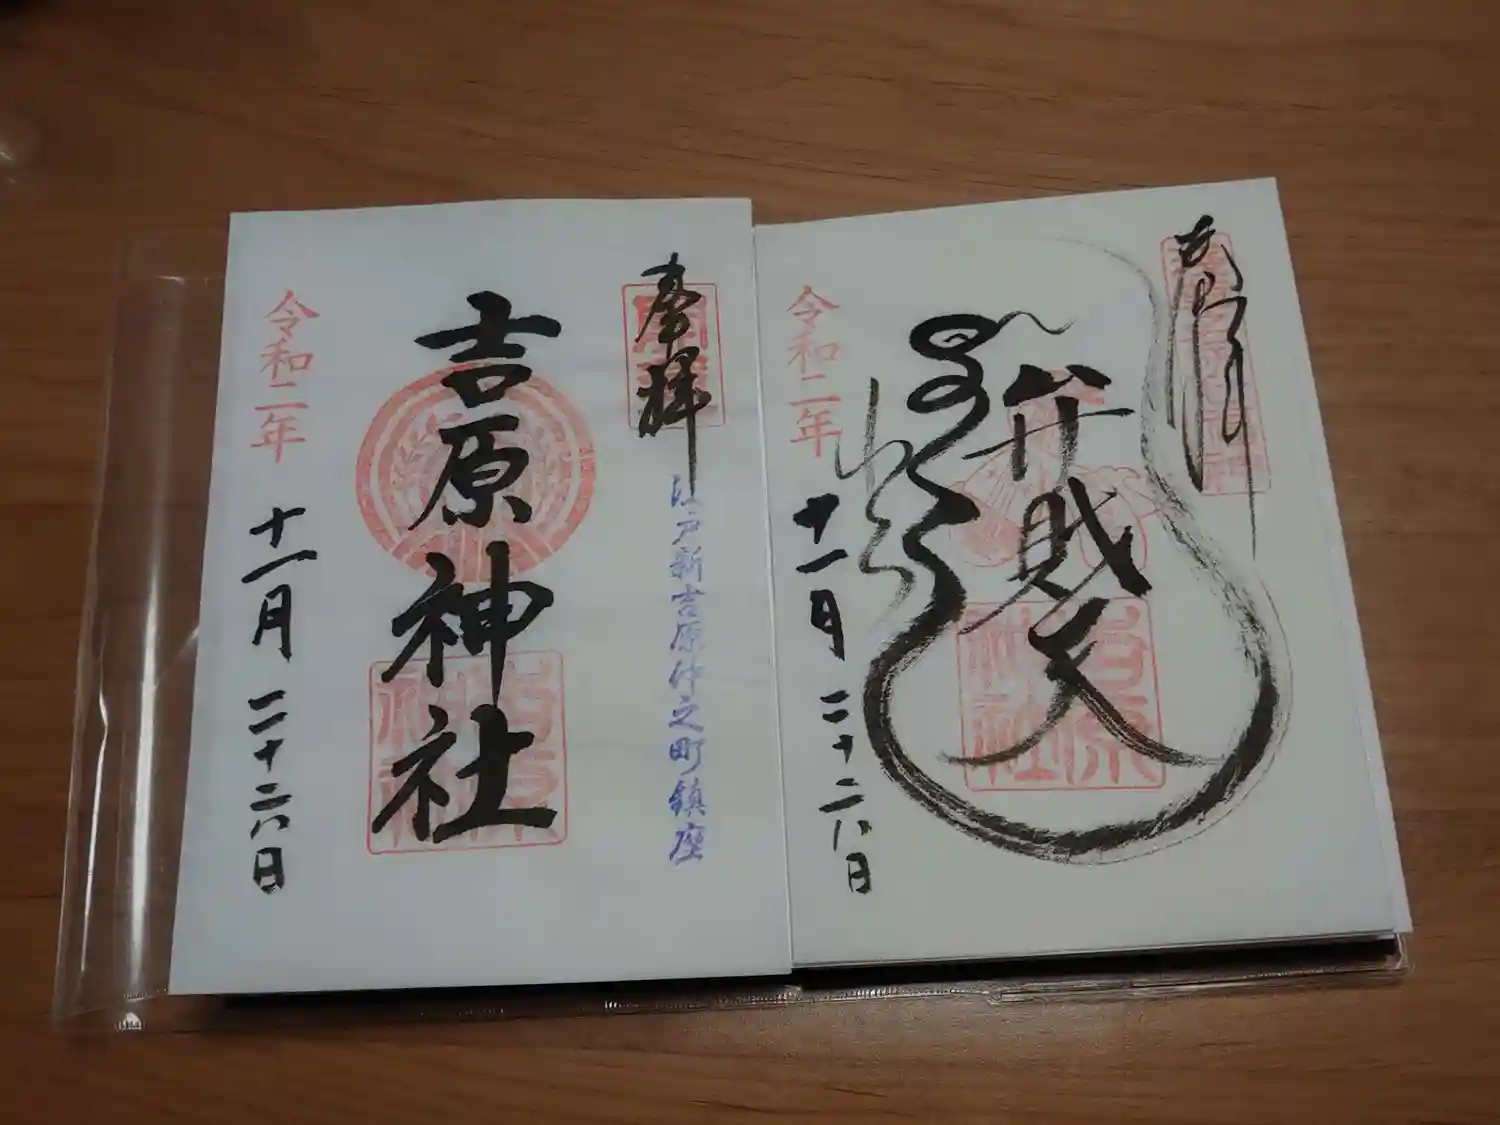 弁財天
吉原
神社
令和二年 十一月 二十六日
奉拝
江戸新吉原仲之町鎮座
吉原神社
吉原
神社
令和二年 十一月 二十六日